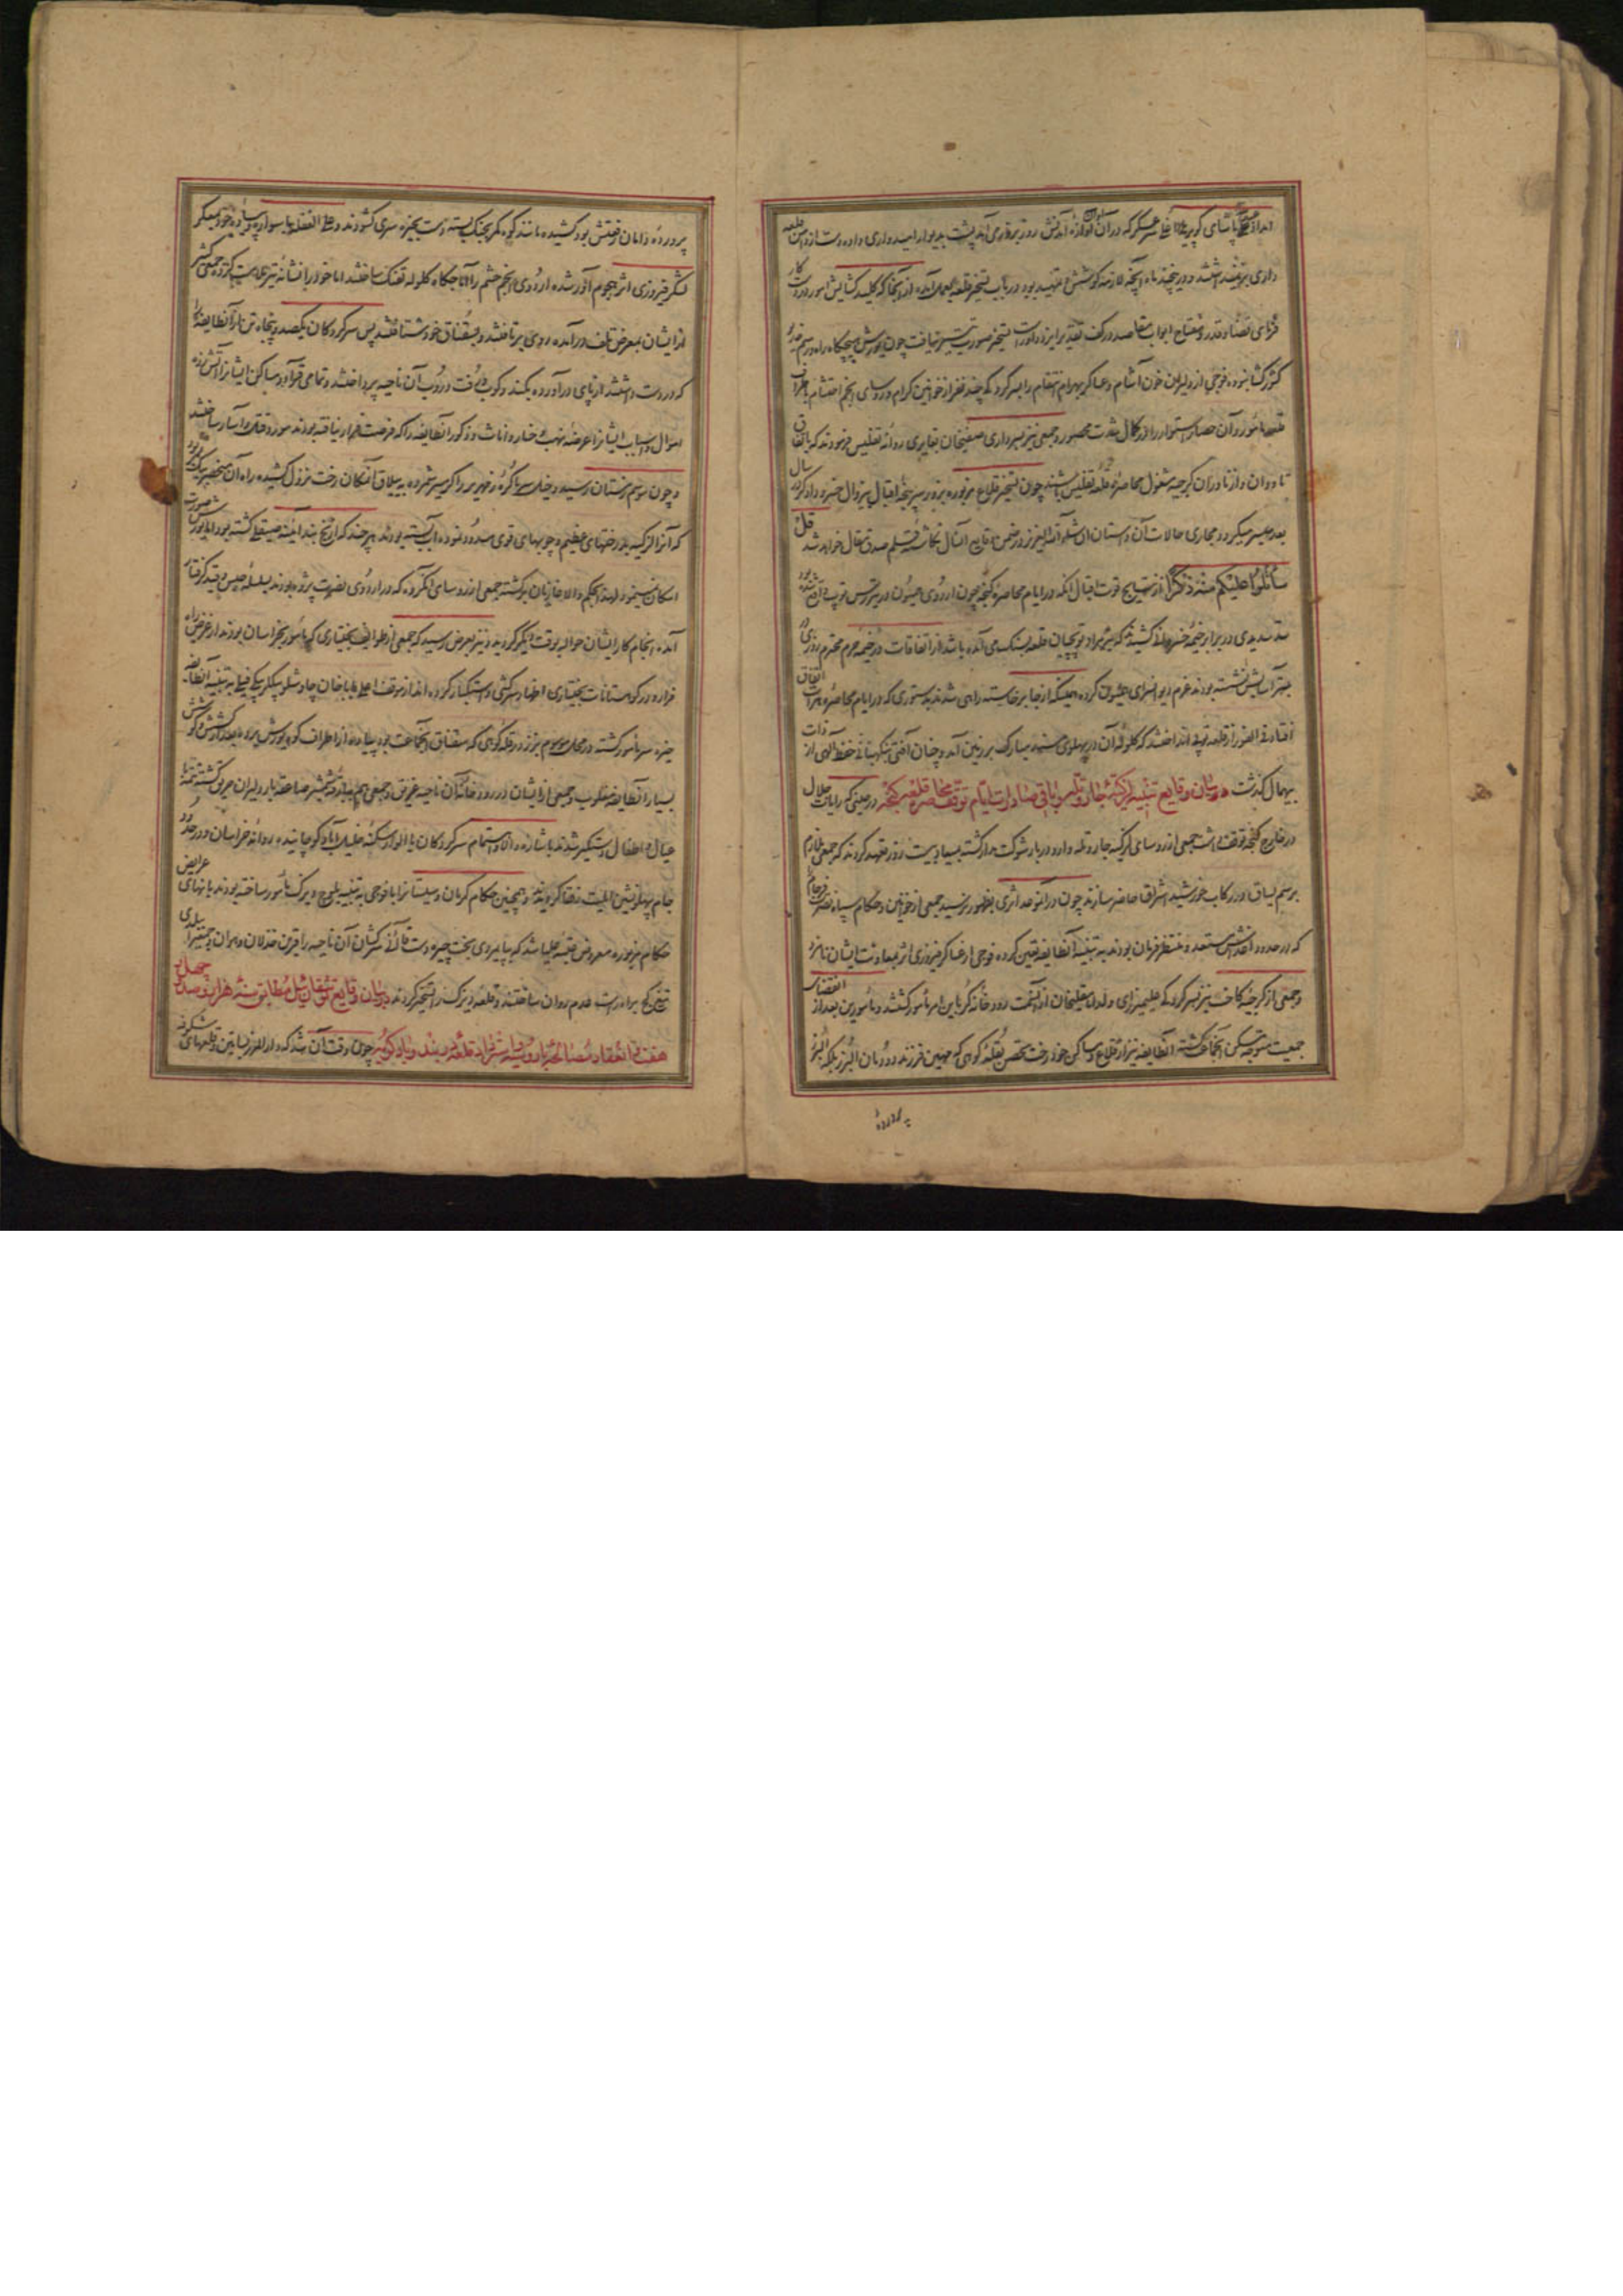 امداد عبدالله پاشای کوپریلی اوغلی سرعسکر که در آن اوان آوازهٔ آمدنش روز بروز می‌آمد پشت بدیوار امیدواری داده دست از دامن قلعه
داری بر نمیداشتند و در چند ماه آنچه لازمهٔ کوشش و تمهید بود در باب تسخیر قلعه بعمل آمد از آنجا که کلید کشایش امور در دست کار
فرمای قضا و قدر و مفتاح ابواب مقاصد در کف تقدیر ایزد داور است تسخیر صورت تیسیر نیافت چون یورش هیچکاه راه و رسم خدیو
کشورکشا نبود فوجی از دلیران خون آشام و عساکر بهرام انتقام را بسرکردگی چند نفر از خوانین کرام و رؤسای انجم احتشام باطراف
قلعه مأمور و آن حصار استوار را در کمال شدت محصور و جمعی نیز بسرداری صفیخان بغایری روانه تفلیس فرمودند که باتفاق
تاوادان و ازناوران کرجیه مشغول محاصرهٔ قلعهٔ تفلیس باشند چون تسخیر قلاع مزبوره بزور سرپنجهٔ اقبال بیزوال خسرو دادگر سال
بعد میسر میکردد مجاری حالات آن داستان انشاء الله العزیز در ضمن وقایع آن سال نکاشتهٔ قلم صدق مقال خواهد شد قل
سأتلوا علیکم منه ذکرا از نتایج قوت اقبال آنکه در ایام محاصرهٔ کنجه چون اردوی همیون در تیررس توپ واقع شده بود
سد سدیدی در برابر خیمهٔ خسروی کشیدند که تیر مراد توپچیان قلعه بسنگ می‌آمده باشد از اتفاقات در خیمهٔ حرم محترم روزی در
بستر آسایش نشسته بودند عزم دیوانسرای همیون کرده همینکه از جا برخاسته راهی شدند بدستوری که در ایام محاصرهٔ هرات اتفاق
افتاد فی الفور از قلعه توپی انداختند که کلولهٔ آن در پهلوی مسند مبارک بر زمین آمد و چنان آفتی بنکهبانی حفظ الهی از ذات
بیهمال کذشت در بیان وقایع تنبیه لزکیهٔ جار و تله و باقی صادرات ایام توقف محاصرهٔ قلعهٔ کنجه در حینی که رایات جلال
در خارج کنجه توقف داشت جمعی از رؤسای لزکیهٔ جار و تله وارد دربار شوکت مدار کشته بیست روز تعهد کردند که جمعی ملازم
برسم یساق در رکاب خورشید اشراق حاضر سازند چون در انموعد اثری بظهور نرسید جمعی از خوانین و حکام سپاه نصرت فرجام
که در حدود اغداش مستعد و منتظر فرمان بودند به تنبیه آنطایفه تعیین کرده فوجی از عساکر فیروزی اثر بمعاونت ایشان نامزد
و جمعی از کرجیهٔ کاخت نیز بسرکردگی علیمیرزای ولد امامقلیخان از آنسمت رودخانهٔ کر باین امر مأمور کشتند و مأمورین بعد از انقضاء
جمعیت متوجه مسکن آنجماعت کشته آنطایفه نیز از قلاع و مساکن خود رخت تحصن بقلهٔ کوهی که مهین فرزند دودمان البرز بلکه البرز
پروردهٔ
پروردهٔ دامان رفعتش بود کشیده مانند کوه کمر بجنگ بسته دست بخیره سری کشودند و علی الغفله با سواره و پیادهٔ خود بمعسکر
لشکر فیروزی اثر هجوم آور شده اردوی انجم حشم را آماجگاه کلولهٔ تفنک ساختند اما خود را نشانهٔ تیر ملامت کرده جمعی کثیر
از ایشان بمعرض تلف درآمده روی برتافتند و بسقناق خود شتافتند پس سرکردکان یکصد و پنجاه تن از آنطایفه را
که در دست داشتند از پای درآورده بکند و کوب و رفت و روب آن ناحیه پرداختند و تمامی قرا و مساکن ایشانرا آتش زده
اموال و اسباب ایشانرا عرضهٔ نهب و خسار و اناث و ذکور آنطایفه را که فرصت فرار نیافته بودند مورد قتل و اسار ساختند
و چون موسم زمستان رسیده و خیل سرما کرهٔ زمهریر را کریبر شمرده به ییلاق آنمکان رخت نزول کشیده راه آن منحصر بیک مورد بود
که آنرا لزکیه بدرختهای عظیم و چوبهای قوی مسدود نموده آب بسته بودند هر چند که از یخ بند آئینهٔ صیقلی کشته بود اما یورش صورت
امکان نمینمود لهذا بحکم والا غازیان برکشته جمعی از رؤسای لکزیه که در اردوی نصرت پژوه بودند بسلسلهٔ حبس و قید کرفتار
آمده انجام کار ایشان حواله بوقت دیگر کردید و نیز بعرض رسید که جمعی از طوایف بختیاری که مأمور بخراسان بودند از عرض راه
فرار و در کوهستانات بختیاری اظهار سرکشی و استکبار کرده اند از موقف اعلی باباخان چاوشلو بیگلربیگی فیلی به تنبیه آنطایفهٔ
خیره سر مأمور کشته در محال موسوم ببرز در قلهٔ کوهی که سقناق آنجماعت بود پیاده از اطراف کوه یورش برده بعد از کشش و کوشش
بسیار آنطایفه مغلوب و جمعی از ایشان در رودخانهٔ آن ناحیه غریق و جمعی هم بیارقهٔ شمشیر صاعقه بار دلیران حریق کشته تتمه با
عیال و اطفال دستگیر شدند باشاره والا و اهتمام سرکردکان با الوار سکنهٔ خلیل آباد کوچانیده روانهٔ خراسان و در حدود
جام پهلونشین ایلیت رفقا کردیدند و همچنین حکام کرمان و سیستانرا با فوجی به تنبیه بلوچ و بیرک مأمور ساخته بودند بانهای عرایض
حکام مزبوره معروض عتبهٔ علیا شد که بپایمردی بخت چیره دست والا سرکشان آن ناحیه را قرین خذلان و دیران چمشیر را بیلدی
تیغ کج براه راست عدم روان ساختند و قلعهٔ دیزک را تسخیر کردند در بیان وقایع توشقان ئیل مطابق سنهٔ هزار و صد و چهل و
هفت و انعقاد مصالحه با روسیه و استرداد قلعهٔ دربند و بادکوبه چون وقت آن شد که دارالمرز بساتین و قلعهای شکوفه